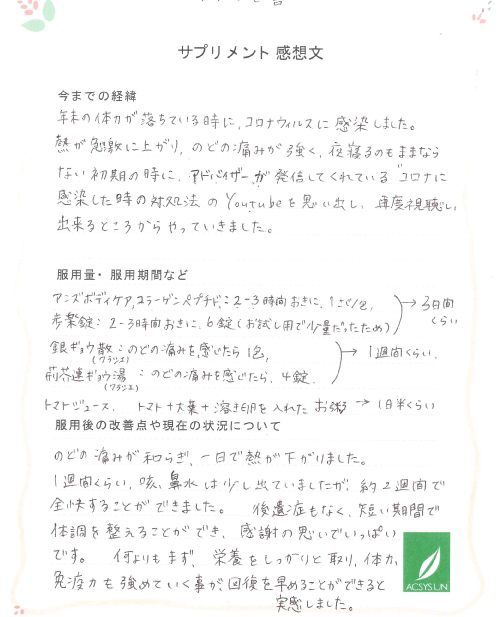 サプリメント 感想文
今までの経緯
年末の体力が落ちている時に、コロナウィルスに感染しました。
熱が急激に上がり、のどの痛みが強く、夜寝るのもままなら
ない初期の時に、アドバイザーが発信してくれている"コロナに
感染した時の対処法のYoutubeを思い出し、再度視聴し、
出来るところからやっていきました。
服用量・服用期間など
アニズボディケア,コラーゲンペプチド:2-3時間おきに、1さじ/包,
歩楽錠:2-3時間おきに、6錠(お試し用で少量だったため)
→3日間くらい
銀ギョウ散:のどの痛みを感じたら1包,
(クラシエ)
荊芥連ギョウ湯:のどの痛みを感じたら、4錠.
(クラシエ)
→1週間くらい.
トマトジュース、トマト+大葉+溶き卵を入れたお粥→1日半くらい
服用後の改善点や現在の状況について
のどの痛みが和らぎ、一日で熱が下がりました。
1週間くらい、咳、鼻水は少し出ていましたが、約2週間で
全快することができました。 後遺症もなく、短い期間で
体調を整えることができ、感謝の思いでいっぱい
です。 何よりもまず、栄養をしっかりと取り、体力、
免疫力を強めていく事が、回復を早めることができると
実感しました。
ACSYSLIN